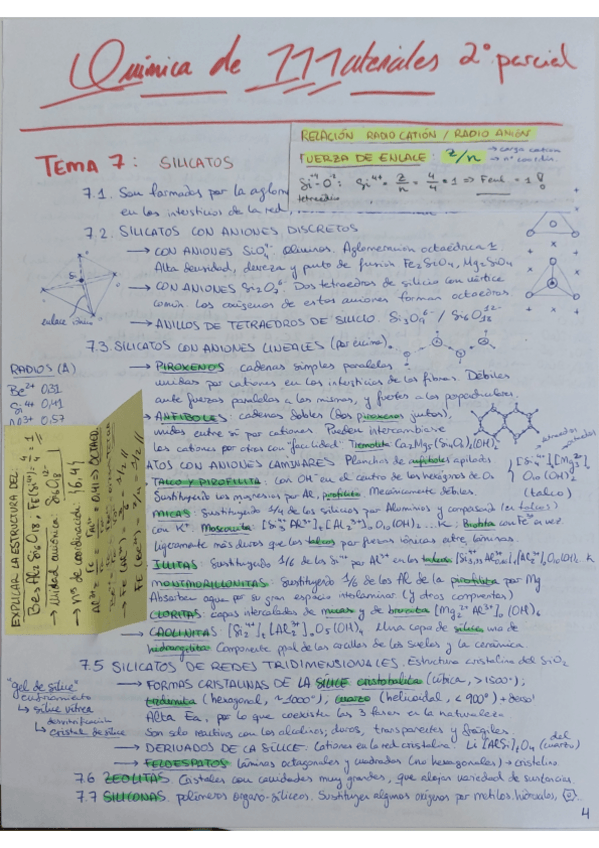 Química de Materiales 2º parcial
RELACIÓN RADIO CATIÓN / RADIO ANIÓN
FUERZA DE ENLACE: z/n → carga catión
→ nº coordin.
Si⁺⁴-O⁻²: Si⁴⁺ = z/n = 4/4 = 1 ⇒ Fenl = 1
tetraedro
TEMA 7: SILICATOS
7.1. Son formados por la aglom
en los intersticios de la red,
7.2. SILICATOS CON ANIONES DISCRETOS
→ CON ANIONES SiO₄⁴⁻ olivinos. Aglomeración octaédrica
Alta densidad, dureza y punto de fusión Fe₂SiO₄, Mg₂SiO₄
→ CON ANIONES Si₂O₇⁶⁻ Dos tetraedros de silicio con vértice
común. Los oxígenos de estos aniones forman octaedros
→ ANILLOS DE TETRAEDROS DE SILICIO. Si₃O₉⁶⁻ / Si₆O₁₈¹²⁻
enlace
7.3. SILICATOS CON ANIONES LINEALES (por encima)
RADIOS (Å)
Be²⁺ 0,31
Si⁺⁴ 0,41
Al³⁺ 0,57
→ PIROXENOS cadenas simples paralelas
unidas por cationes en los intersticios de las fibras. Débiles
ante fuerzas paralelas a las mismas, y fuertes a las perpendiculares.
→ ANFIBOLES: cadenas dobles (dos piroxenos juntos),
unidas entre sí por cationes. Pueden intercambiarse
los cationes por otros con facilidad. Tremolita Ca₂Mg₅(Si₄O₁₁)₂(OH)₂
EXPLICAR LA ESTRUCTURA DEL:
Be₃Al₂Si₆O₁₈, Fe(Si⁴⁺) = 4/4 = 1
→ Unidad aniónica: Si₆O₁₈¹²⁻
→ nº de coordinación: {6,4}
→ OCTAED.
→ Fe (Al³⁺) = 3/6 = 1/2
Fe (Be²⁺) = 2/4 = 1/2
ATOS CON ANIONES LAMINARES Planchas de anfiboles apilados
TALCO Y PIROFILITA: con OH⁻ en el centro de los hexágonos de O.
Sustituyendo los magnesios por Al, pirofilita. Mecánicamente débiles.
(talco)
MICAS: Sustituyendo 1/4 de los silicios por Aluminios y compensando (en talcos)
con K⁺. Moscovita: [Si₃⁴⁺Al³⁺]₄[Al₂³⁺]₆O₁₀(OH)₂...K; Biotita con Fe²⁺ en vez
ligeramente más duros que los talcos por fuerzas iónicas entre láminas.
ILLITAS: Sustituyendo 1/6 de los Si⁴⁺ por Al³⁺ en los talcos
MONTMORILLONITAS: Sustituyendo 1/6 de los Al de la pirofilita por Mg
Absorben agua por su gran espacio interlaminar (y otros compuestos)
CLORITAS: capas intercaladas de micas y de brucita [Mg₂²⁺Al³⁺]₆(OH)₆
→ CAOLINITAS [Si₂⁴⁺]₄[Al₂³⁺]₆O₅(OH)₄ Una capa de sílice, una de
hidrargilita Componente ppal de las arcillas de los suelos y la cerámica.
7.5 SILICATOS DE REDES TRIDIMENSIONALES. Estructura cristalina del SiO₂
"gel de sílice"
enfriamiento
↳ sílice vítrea
desvitrificación
↳ cristal de sílice
→ FORMAS CRISTALINAS DE LA SÍLICE cristobalita (cúbica, >1500°);
tridimita (hexagonal, ~1000°); cuarzo (helicoidal, <900°) + denso
Alta Ea, por lo que coexisten las 3 fases en la naturaleza
Son solo reactivos con los alcalinos; duros, transparentes y frágiles.
→ DERIVADOS DE LA SÍLICE. Cationes en la red cristalina. Li[AlSi]₄O₄ (del cuarzo)
→ FELDESPATOS láminas octagonales y cuadradas (no hexagonales) → cristalino.
7.6 ZEOLITAS Cristales con cavidades muy grandes, que alojan variedad de sustancias
7.7 SILICONAS. polímeros organo-silíceos. Sustituyen algunos oxígenos por metilos, hidroxilos,
4